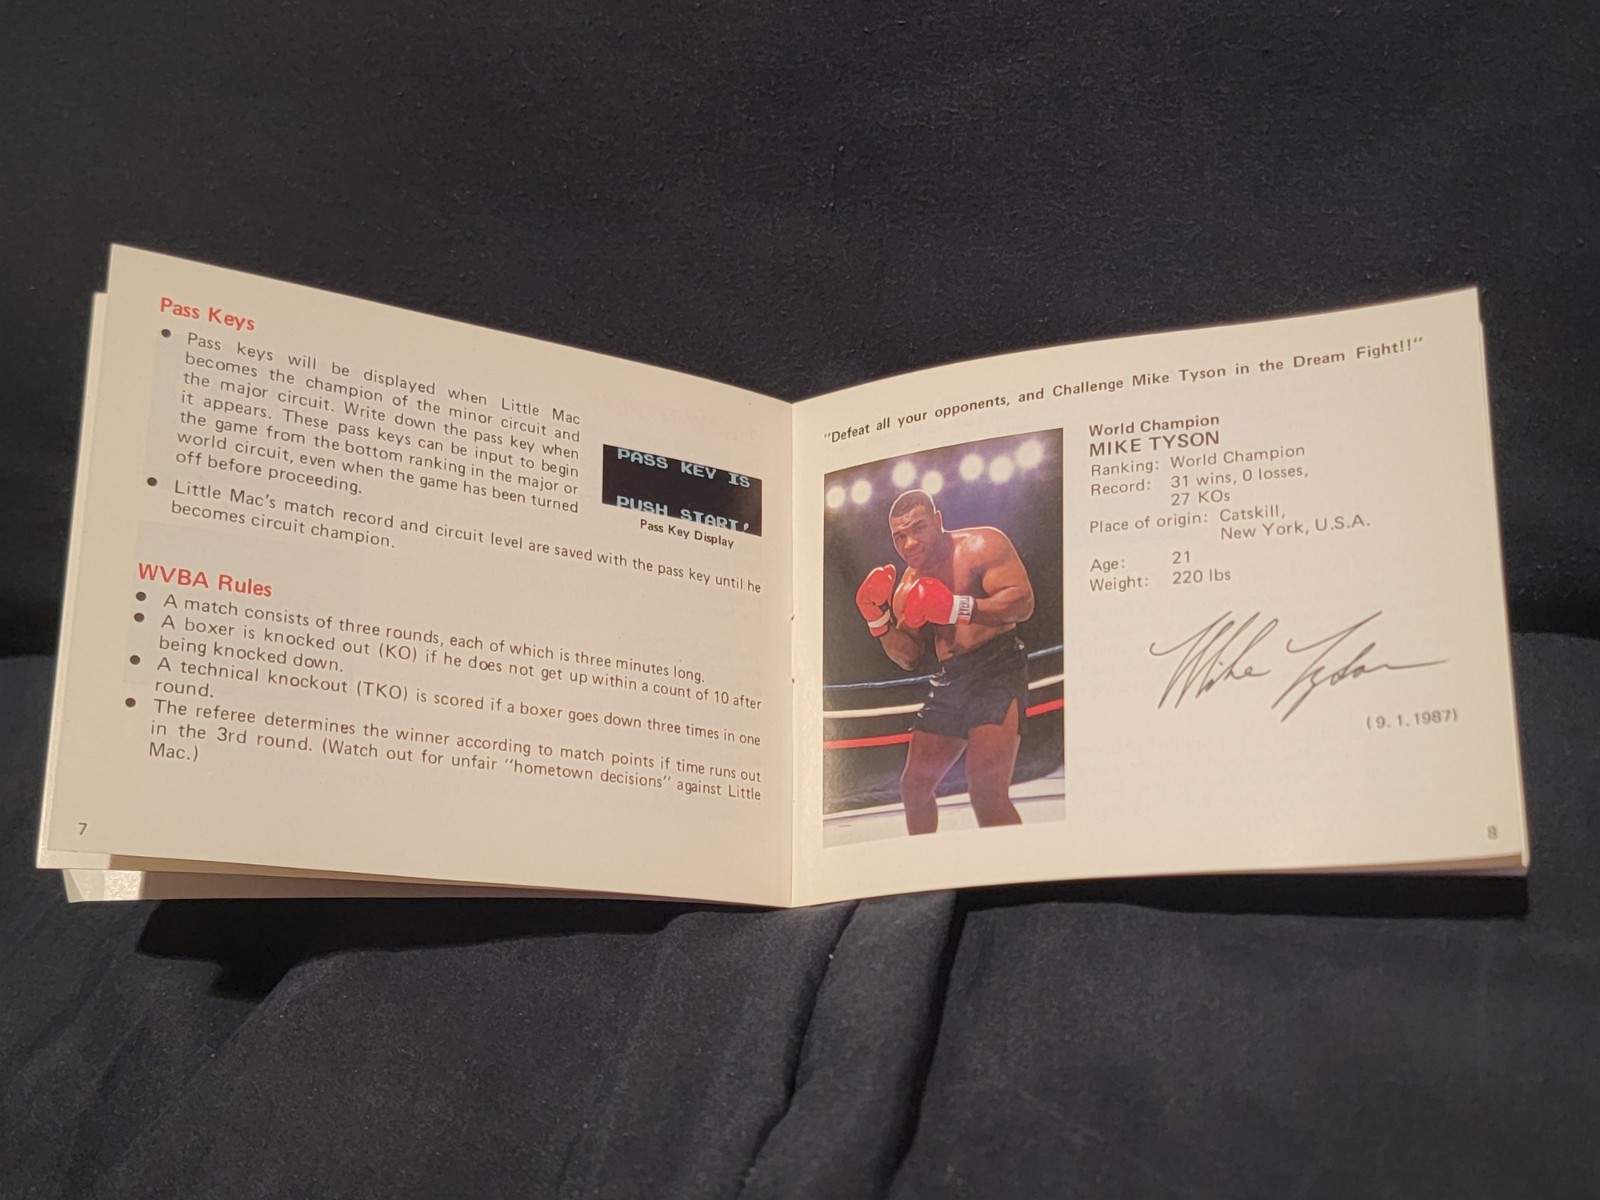 Pass Keys
● Pass keys will be displayed when Little Mac
becomes the champion of the minor circuit and
the major circuit. Write down the pass key when
it appears. These pass keys can be input to begin
the game from the bottom ranking in the major or
world circuit, even when the game has been turned
off before proceeding.
PASS KEY IS
PUSH START!
Pass Key Display
● Little Mac's match record and circuit level are saved with the pass key until he
becomes circuit champion.
WVBA Rules
● A match consists of three rounds, each of which is three minutes long.
● A boxer is knocked out (KO) if he does not get up within a count of 10 after
being knocked down.
● A technical knockout (TKO) is scored if a boxer goes down three times in one
round.
● The referee determines the winner according to match points if time runs out
in the 3rd round. (Watch out for unfair "hometown decisions" against Little
Mac.)
7
"Defeat all your opponents, and Challenge Mike Tyson in the Dream Fight!!"
World Champion
MIKE TYSON
Ranking: World Champion
Record: 31 wins, 0 losses,
27 KOs
Place of origin: Catskill,
New York, U.S.A.
Age: 21
Weight: 220 lbs
Mike Tyson
(9.1.1987)
8